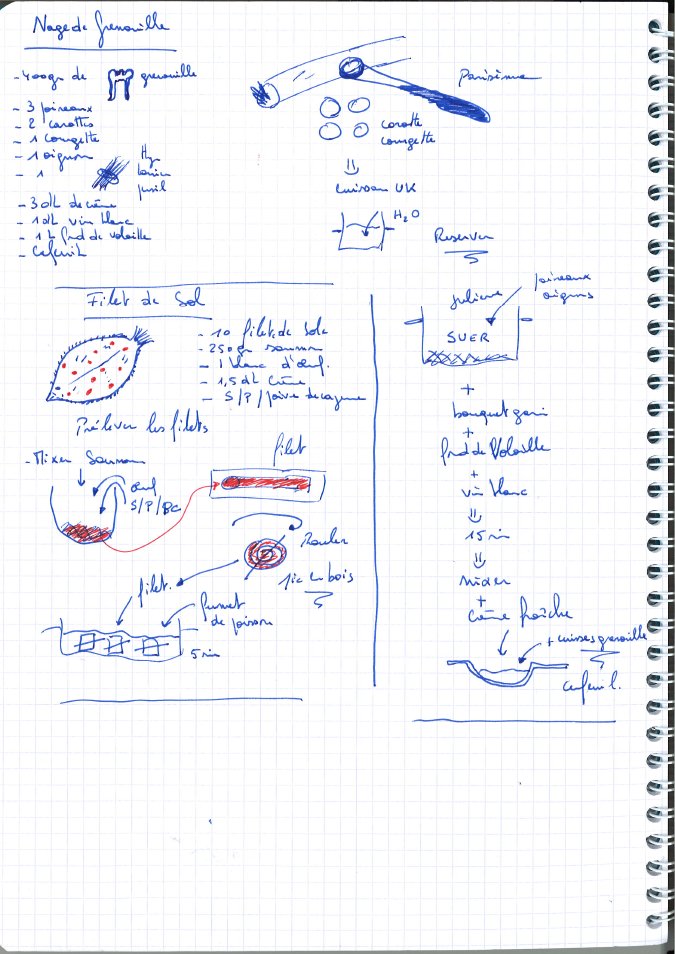 Nage de Grenouille
- 400gr de grenouille
- 3 poireaux
- 2 carottes
- 1 courgette
- 1 oignon
- 1
- 3 dl de crème
- 1 dl vin blanc
- 1 L fond de volaille
- Cerfeuil
Parisienne
carotte
courgette
cuisson UK
H2O
Reserver
Filet de Sol
- 10 filet de sole
- 250gr saumon
- 1 blanc d'œuf.
- 1,5 dl Crème
- S/P/poivre de cayenne
Prélever les filets
- Mixer Saumon
œuf
S/P/
filet
Rouler
pic en bois
filet.
fumet
de poisson
5 min
julienne
poireaux
oignons
SUER
+
bouquet garni
+
fond de Volaille
+
vin blanc
15 min
mixer
+
Crème fraîche
+ cuisses grenouille
cerfeuil.